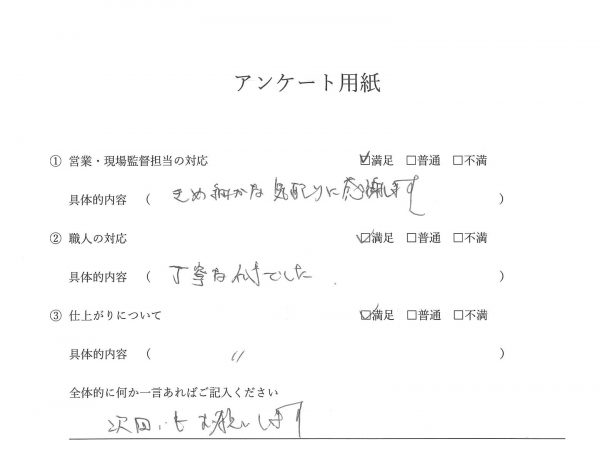 アンケート用紙
① 営業・現場監督担当の対応 ☑満足 □普通 □不満
具体的内容 ( きめ細かな気配りに感謝します )
② 職人の対応 ☑満足 □普通 □不満
具体的内容 ( 丁寧な でした )
③ 仕上がりについて ☑満足 □普通 □不満
具体的内容 ( 〃 )
全体的に何か一言あればご記入ください
次回もお願いします